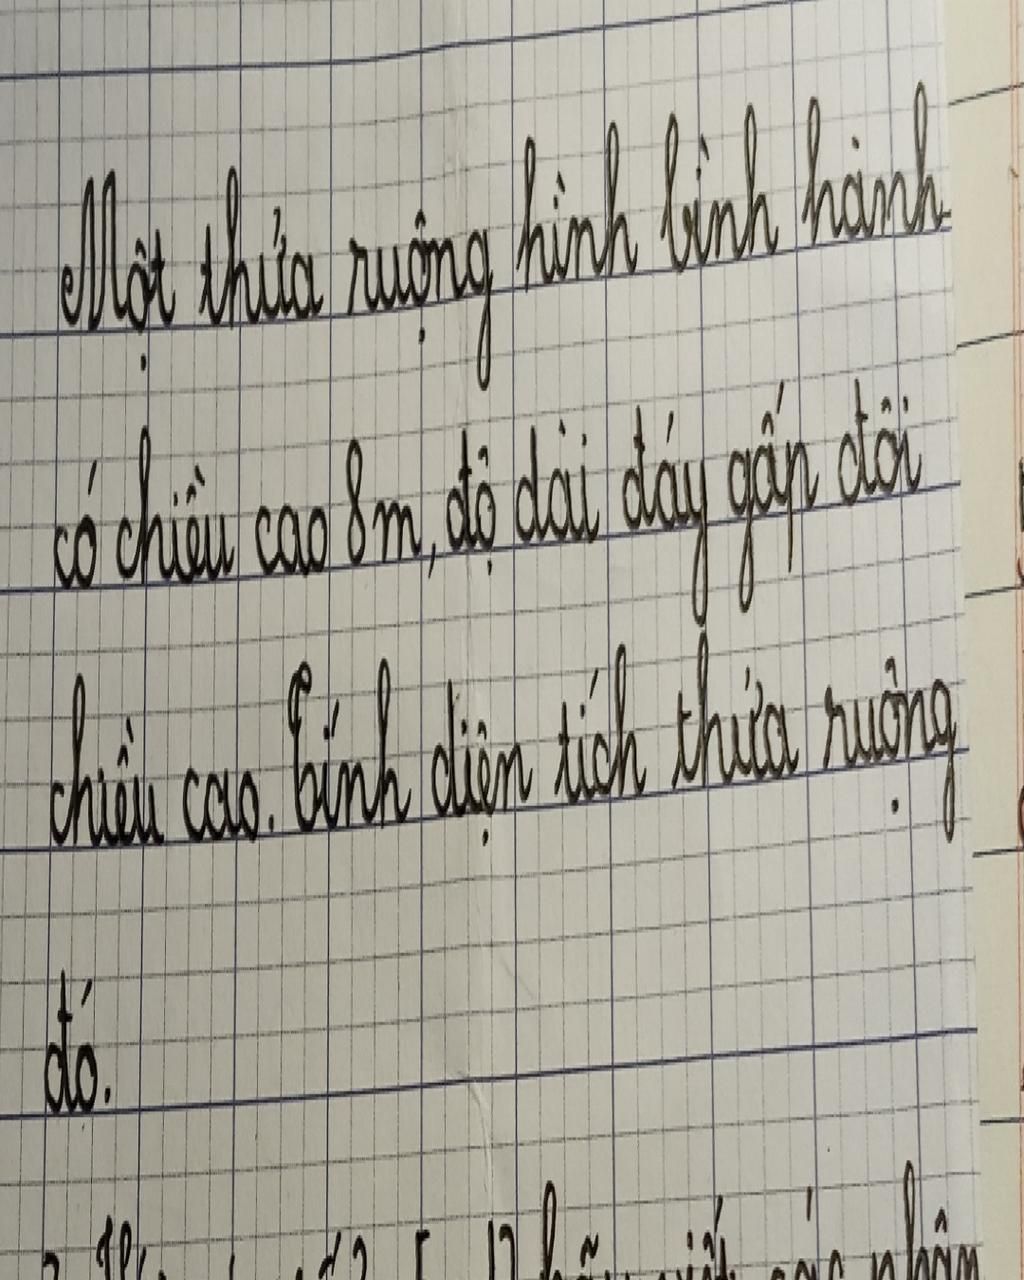 Một thửa ruộng hình bình hành
có chiều cao 8m, độ dài đáy gấp đôi
chiều cao. Tính diện tích thửa ruộng
đó.